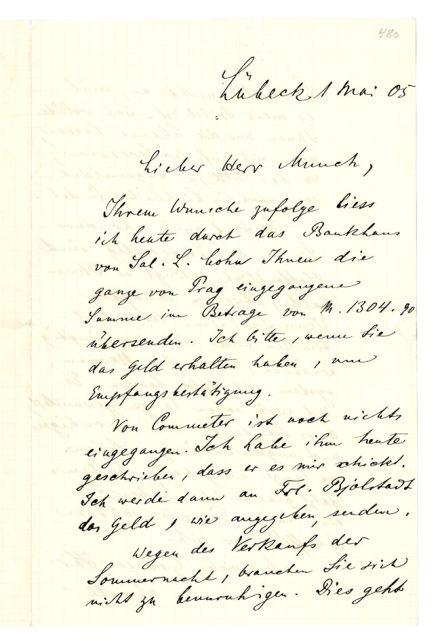 480
Lübeck 1 Mai 05
Lieber Herr Munch,
Ihrem Wunsche zufolge liess
ich heute durch das Bankhaus
von Sal. L. Cohn Ihnen die
ganze von Prag eingegangene
Summe im Betrage von M. 1304.90
übersenden. Ich bitte, wenn Sie
das Geld erhalten haben, um
Empfangsbestätigung.
Von Commeter ist noch nichts
eingegangen. Ich habe ihm heute
geschrieben, dass er es mir schickt.
Ich werde dann an Frl. Bjölstadt
das Geld, wie angegeben, senden.
Wegen des Verkaufs der
Sommernacht, brauchen Sie sich
nicht zu beunruhigen. Dies geht